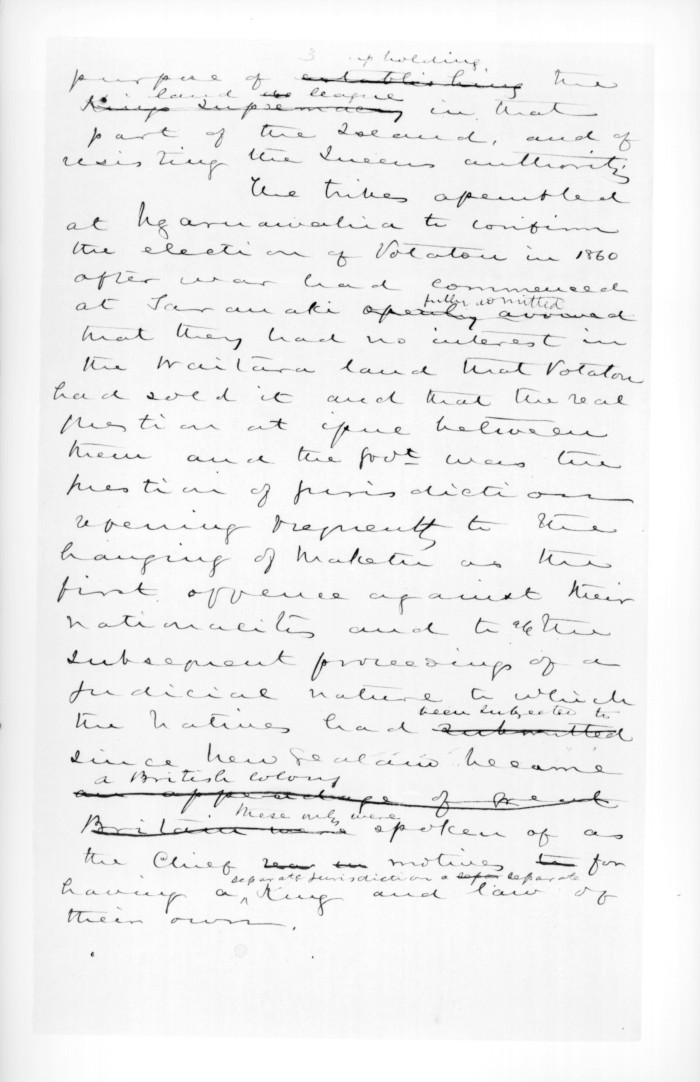 3 upholding
purpose of establishing the
land league
Kings supremacy in that
part of the Island, and of
resisting the Queens authority
The tribes assembled
at Ngaruawahia to confirm
the election of Potatou in 1860
after war had commenced
fully admitted
at Taranaki openly avowed
that they had no interest in
the Waitara land that Potatou
had sold it and that the real
question at issue between
them and the Govt was the
question of jurisdiction
revening frequently to the
hanging of Maketu as the
first offence against their
nationality and to all the
subsequent proceedings of a
judicial nature to which
been subjected to
the Natives had submitted
since New Zealand became
a British Colony
an appendage of Great
these only were
Britain were spoken of as
the Chief motives to for
separate jurisdiction a separate
having a King and law of
their own.